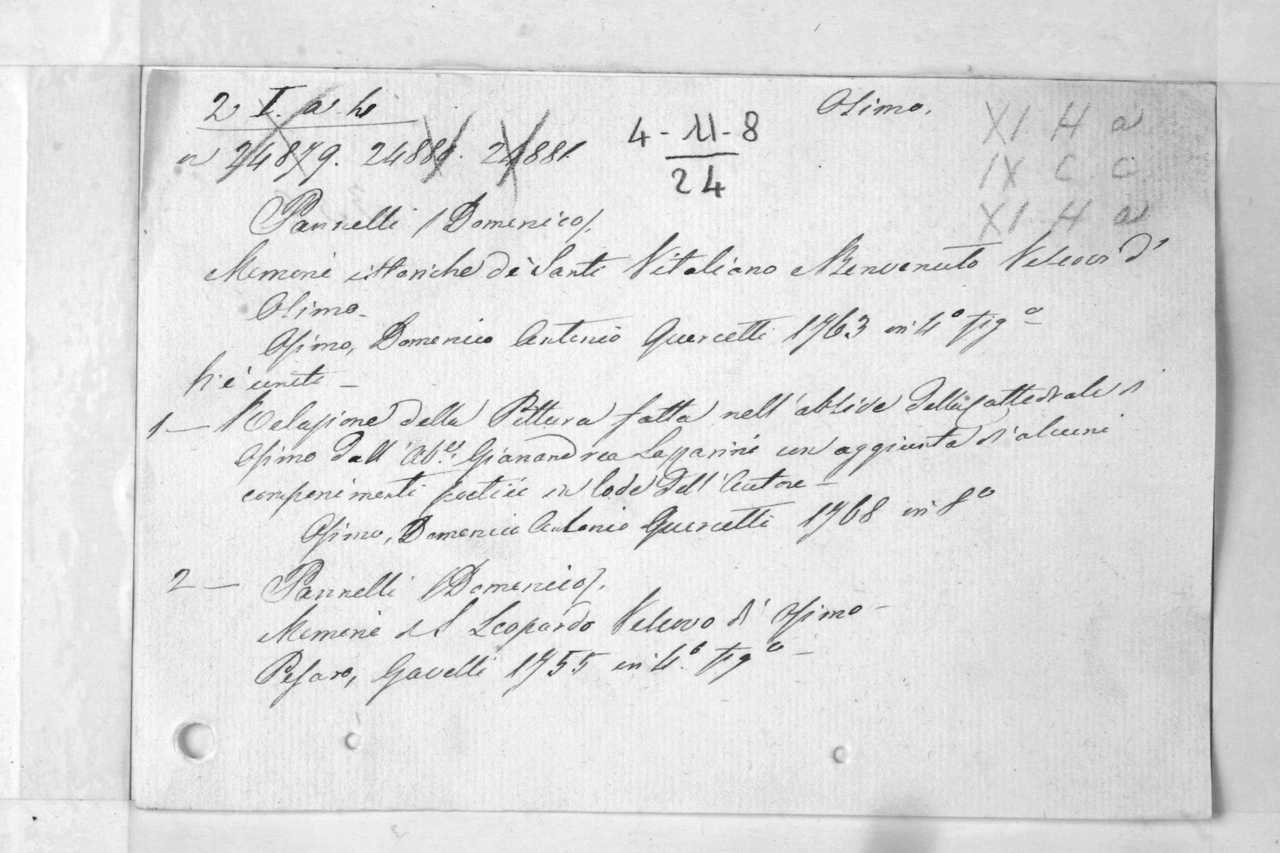 2 I. a. h
Osimo.
XI H a
a 24879. 24880. 24881.
4-11-8
24
IX C. C
XI H a
Pannelli /Domenico/.
Memorie istoriche de Santi Vitaliano e Benvenuto Vescovi d'
Osimo.
Osimo, Domenico Antonio Quercetti 1763 in 4.º fig.º
V'è unito
1 — Relazione della Pittura fatta nell'abside della Cattedrale di
Osimo dall'Ab.e Gianandrea Lazzarini con aggiunta d'alcuni
componimenti poetici in lode dell'Autore —
Osimo, Domenico Antonio Quercetti 1768 in 8º
2 — Pannelli /Domenico/.
Memorie di S. Leopardo Vescovo di Osimo —
Pesaro, Gavelli 1755 in 4.º fig.º —